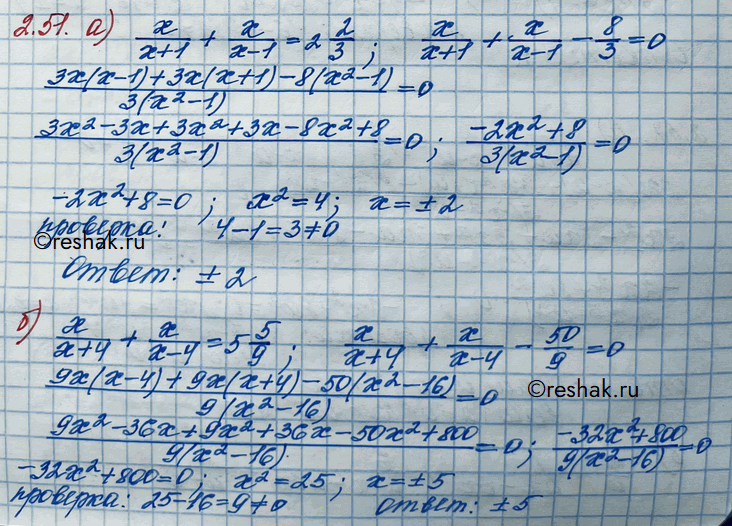 2.51. а) x/(x+1) + x/(x-1) = 2 2/3; x/(x+1) + x/(x-1) - 8/3 = 0
(3x(x-1)+3x(x+1)-8(x²-1))/(3(x²-1)) = 0
(3x²-3x+3x²+3x-8x²+8)/(3(x²-1)) = 0; (-2x²+8)/(3(x²-1)) = 0
-2x²+8=0; x²=4; x=±2
проверка: 4-1=3≠0
©reshak.ru
Ответ: ±2
б) x/(x+4) + x/(x-4) = 5 5/9; x/(x+4) + x/(x-4) - 50/9 = 0
(9x(x-4)+9x(x+4)-50(x²-16))/(9(x²-16)) = 0
©reshak.ru
(9x²-36x+9x²+36x-50x²+800)/(9(x²-16)) = 0; (-32x²+800)/(9(x²-16)) = 0
-32x²+800=0; x²=25; x=±5
проверка: 25-16=9≠0 ответ: ±5